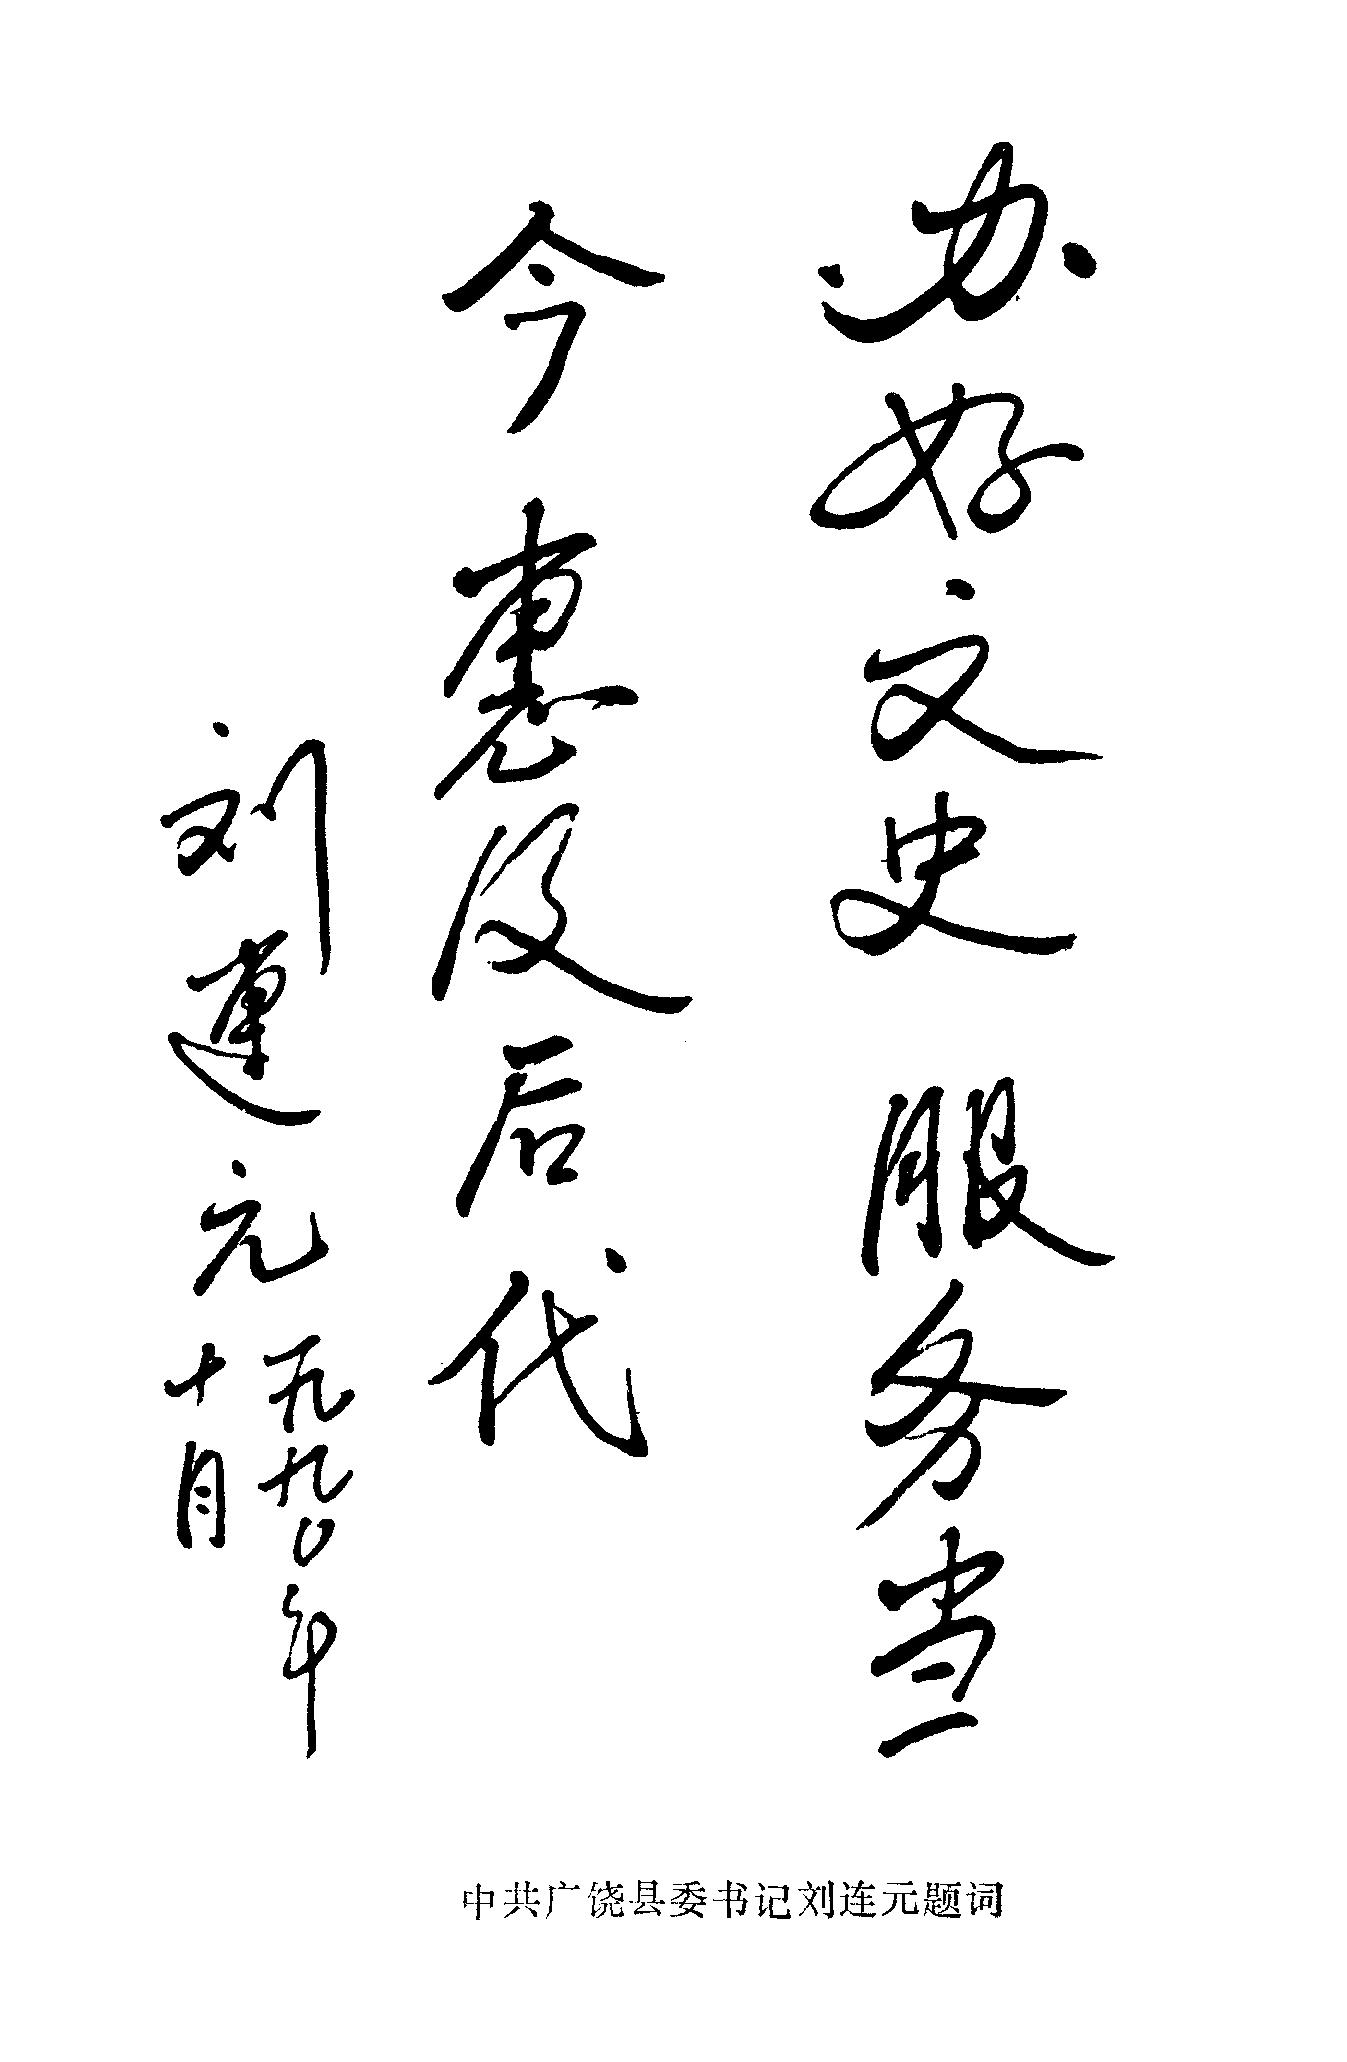 办好文史 服务当
今 惠及后代
刘连元
一九九〇年
十月
中共广饶县委书记刘连元题词